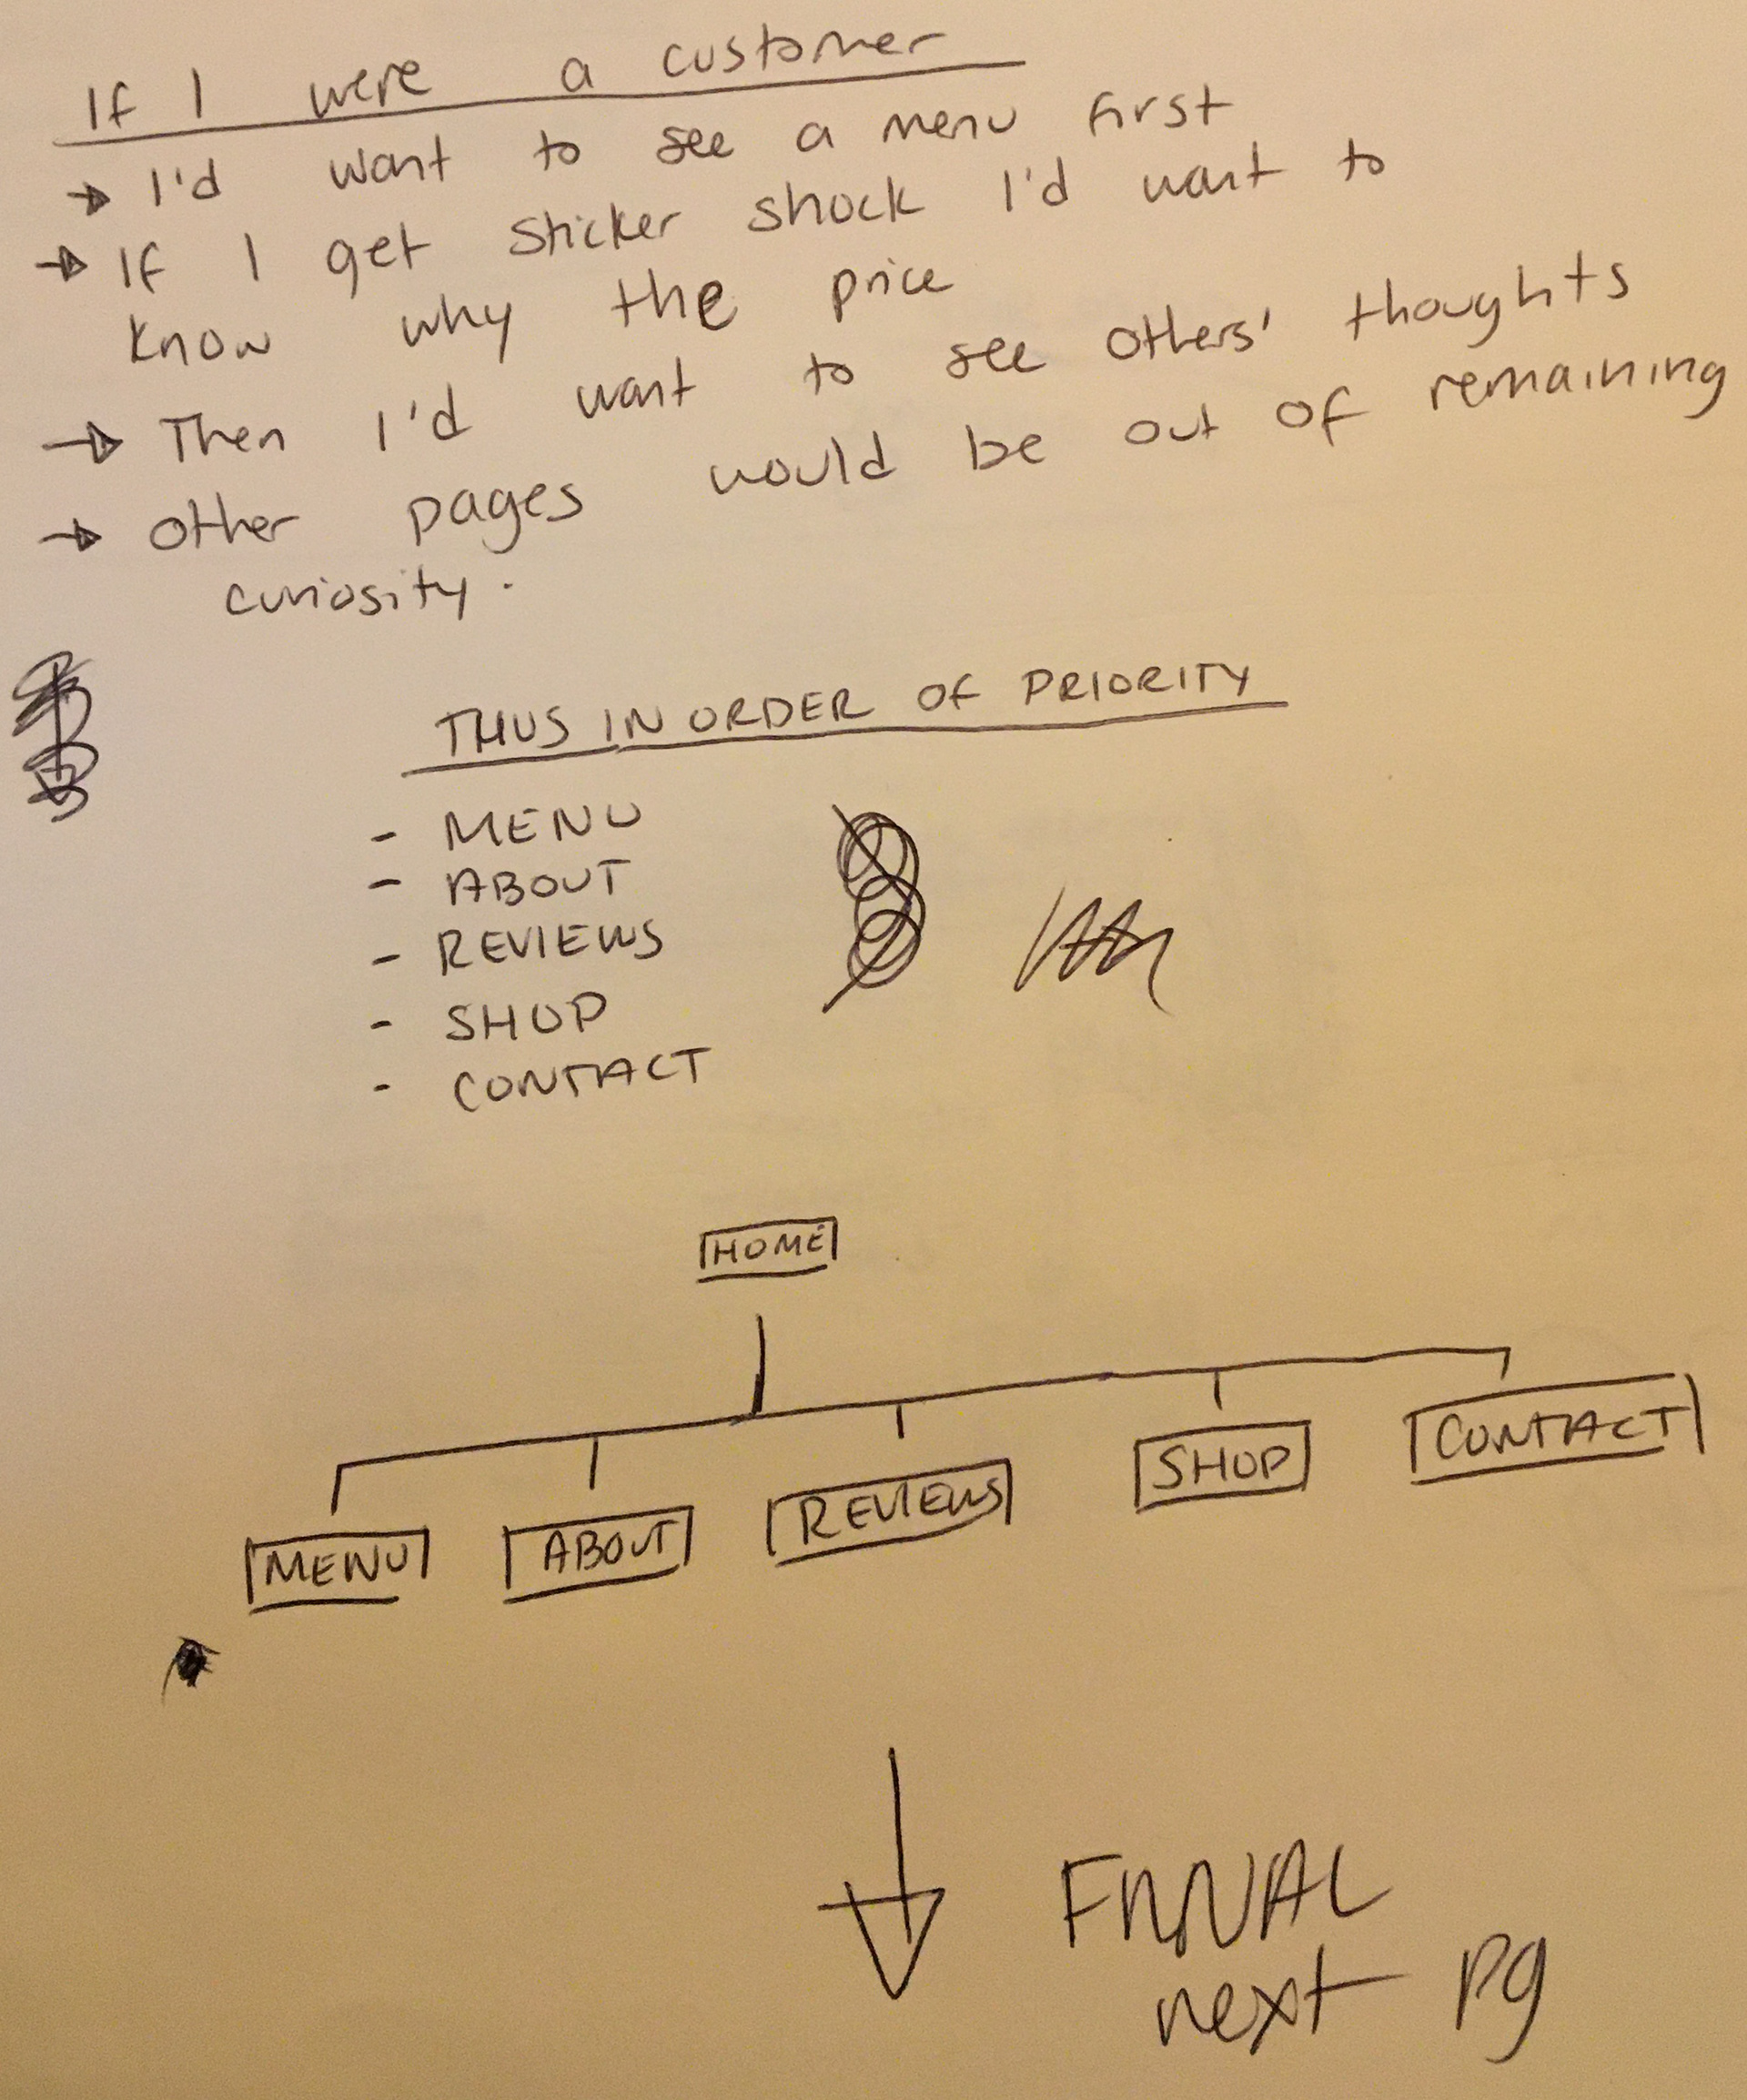 If I were a customer
→ I'd want to see a menu first
→ If I get sticker shock I'd want to
know why the price
→ Then I'd want to see others' thoughts
→ Other pages would be out of remaining
curiosity.
THUS IN ORDER OF PRIORITY
- MENU
- ABOUT
- REVIEWS
- SHOP
- CONTACT
HOME
MENU ABOUT REVIEWS SHOP CONTACT
FINAL
next pg